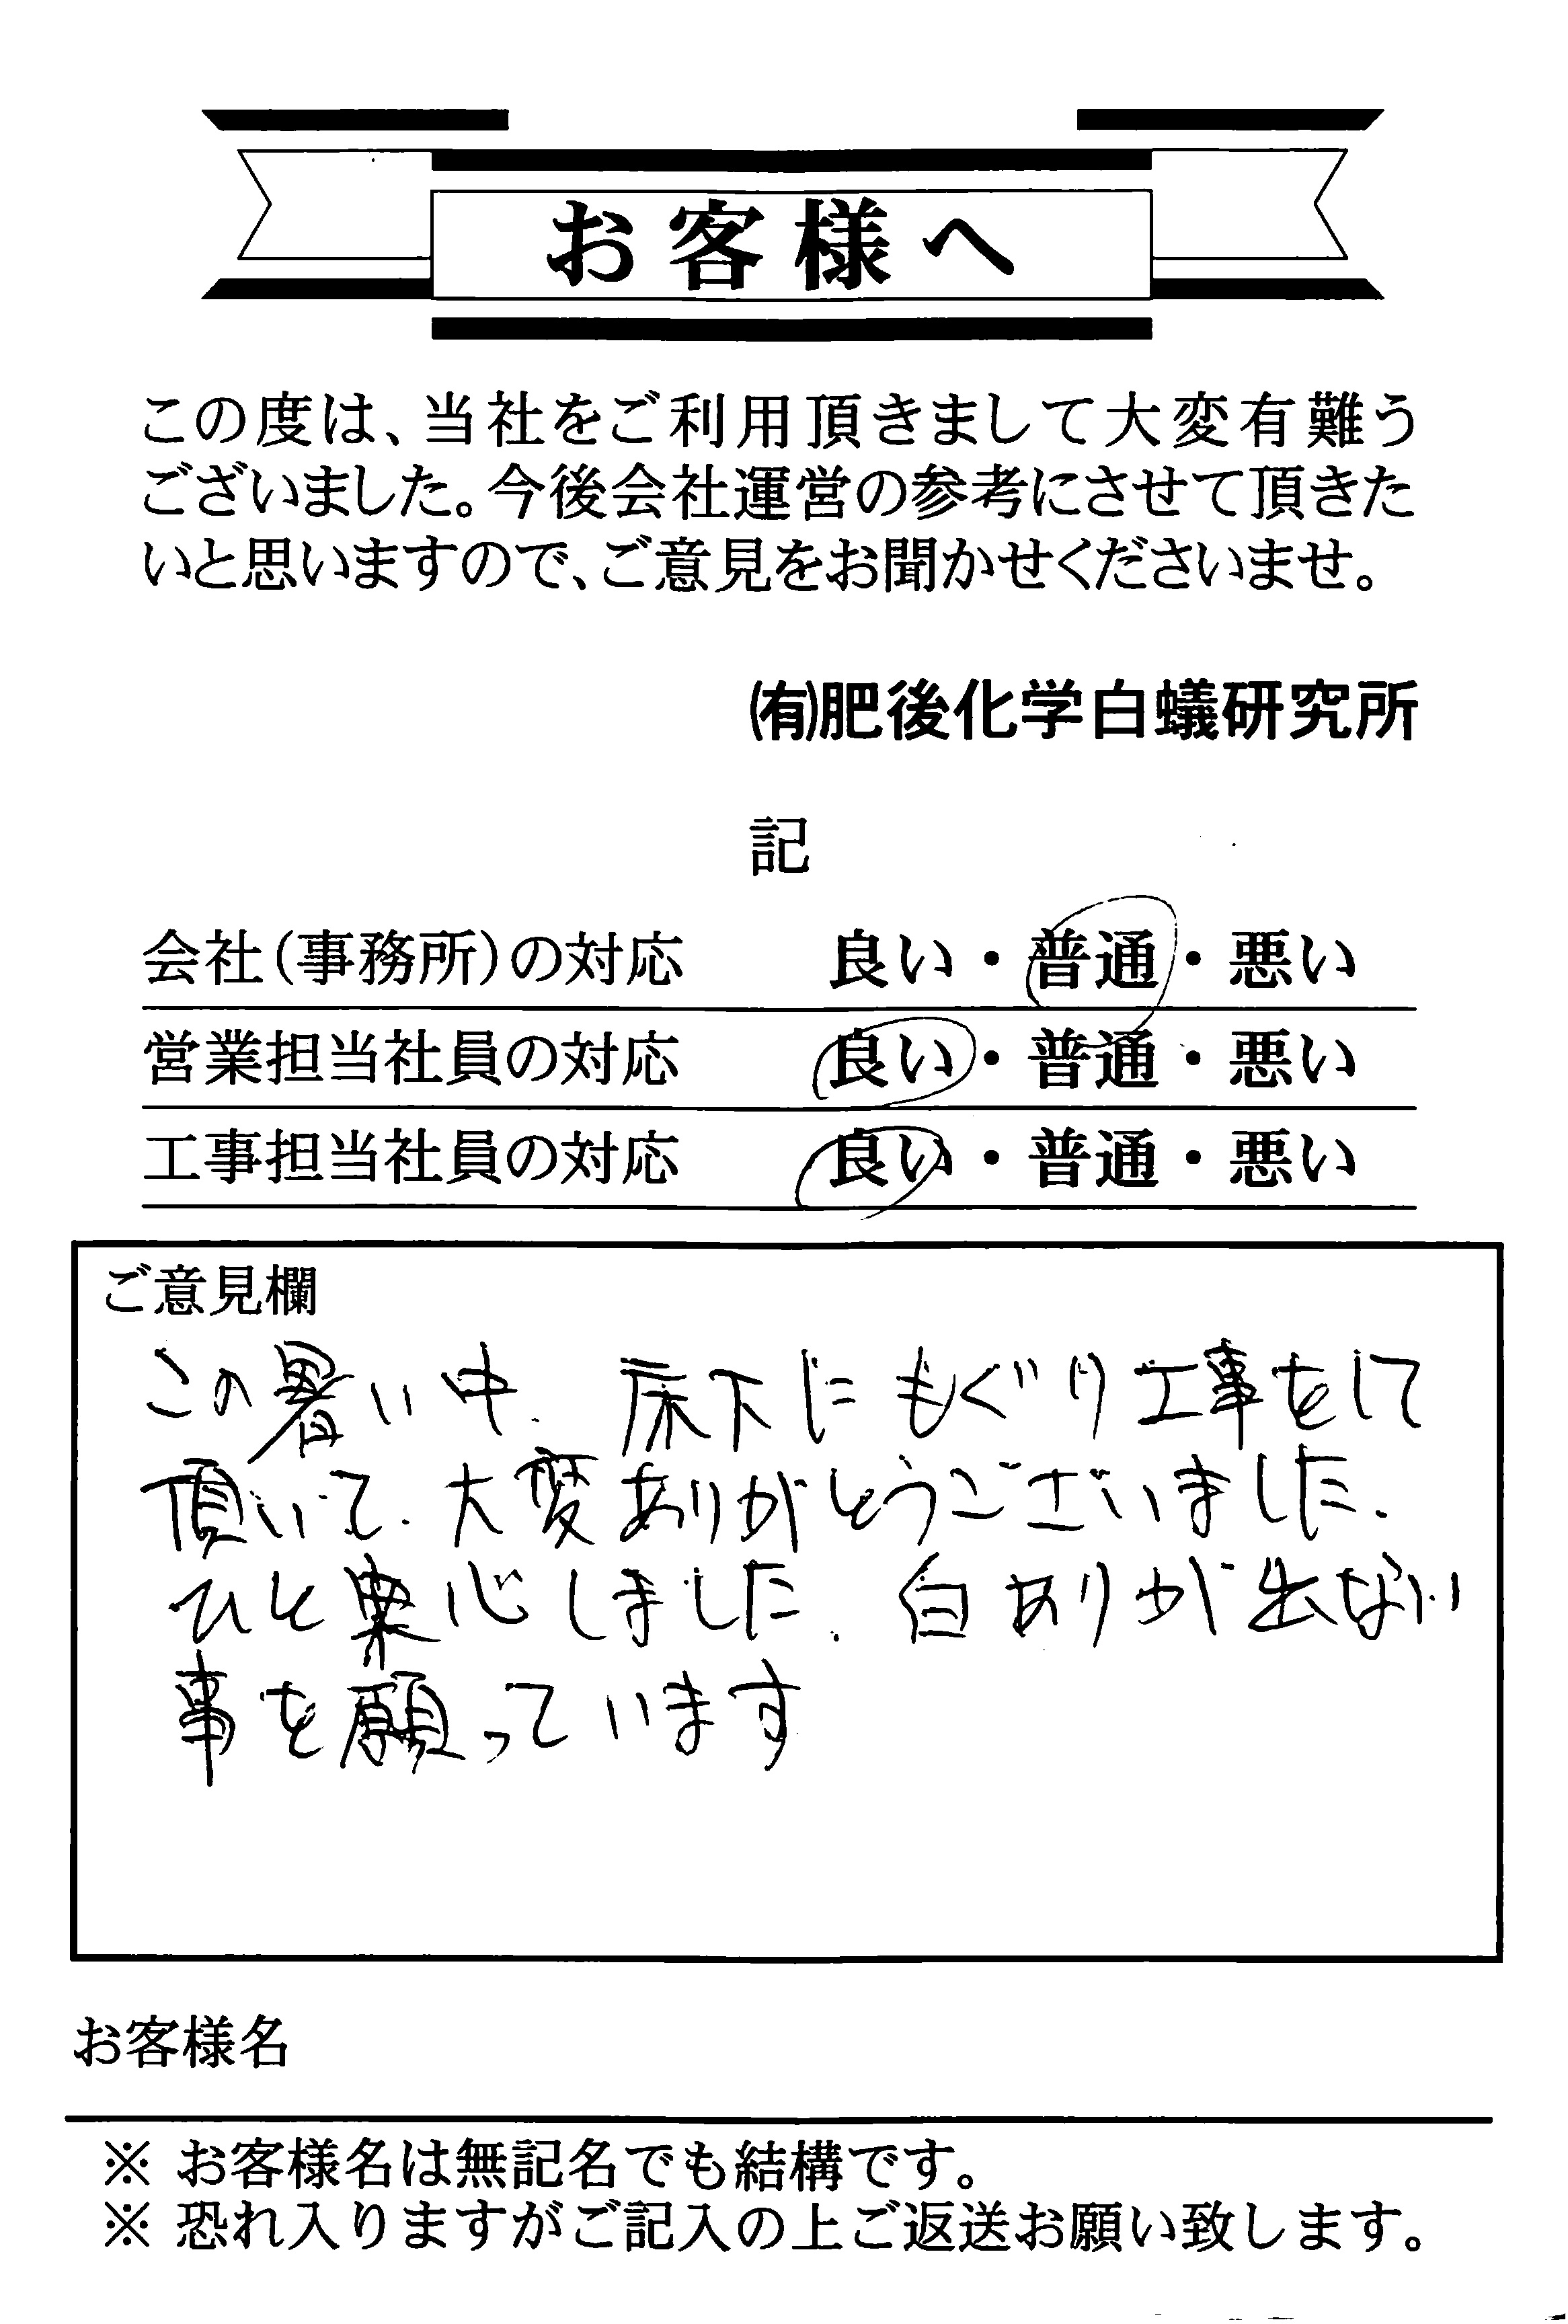 お客様へ
この度は、当社をご利用頂きまして大変有難う
ございました。今後会社運営の参考にさせて頂きた
いと思いますので、ご意見をお聞かせくださいませ。
㈲肥後化学白蟻研究所
記
会社(事務所)の対応 良い・普通・悪い
営業担当社員の対応 良い・普通・悪い
工事担当社員の対応 良い・普通・悪い
ご意見欄
この暑い中、床下にもぐり工事をして
頂いて、大変ありがとうございました。
ひと安心しました。白ありが出ない
事を願っています
お客様名
※ お客様名は無記名でも結構です。
※ 恐れ入りますがご記入の上ご返送お願い致します。